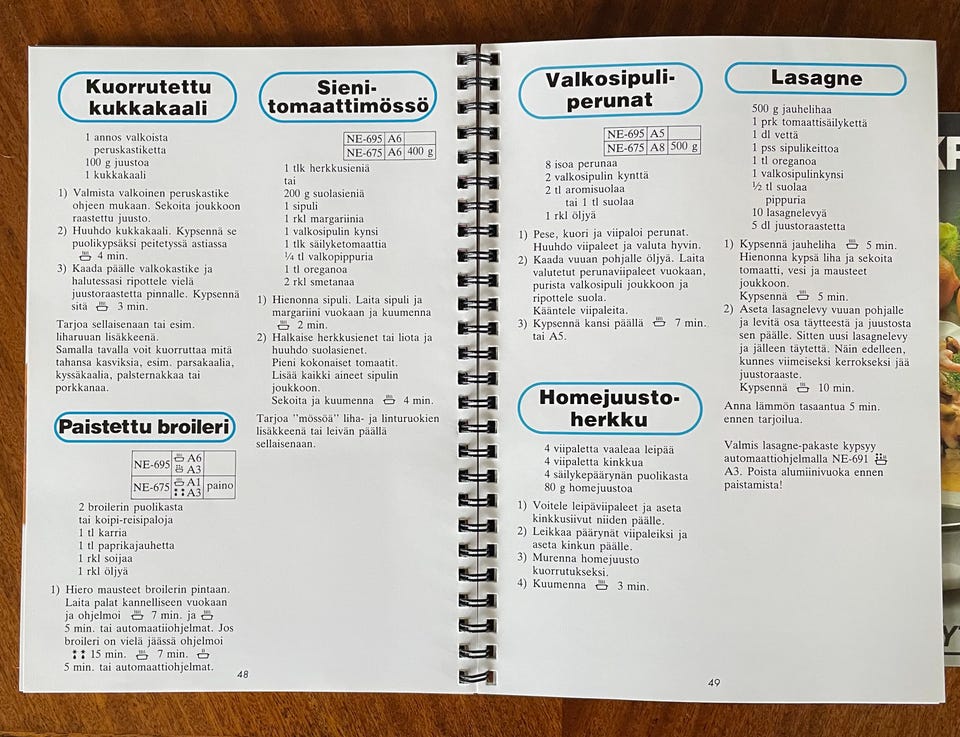 Kuorrutettu
kukkakaali
1 annos valkoista
peruskastiketta
100 g juustoa
1 kukkakaali
1) Valmista valkoinen peruskastike
ohjeen mukaan. Sekoita joukkoon
raastettu juusto.
2) Huuhdo kukkakaali. Kypsennä se
puolikypsäksi peitetyssä astiassa
4 min.
3) Kaada päälle valkokastike ja
halutessasi ripottele vielä
juustoraastetta pinnalle. Kypsennä
sitä 3 min.
Tarjoa sellaisenaan tai esim.
liharuuan lisäkkeenä.
Samalla tavalla voit kuorruttaa mitä
tahansa kasviksia, esim. parsakaalia,
kyssäkaalia, palsternakkaa tai
porkkanaa.
Paistettu broileri
NE-695 A6
A3
NE-675 A1 paino
A3
2 broilerin puolikasta
tai koipi-reisipaloja
1 tl karria
1 tl paprikajauhetta
1 rkl soijaa
1 rkl öljyä
1) Hiero mausteet broilerin pintaan.
Laita palat kannelliseen vuokaan
ja ohjelmoi 7 min. ja
5 min. tai automaatiiohjelmat. Jos
broileri on vielä jäässä ohjelmoi
15 min. 7 min.
5 min. tai automaattiohjelmat.
48
Sieni-
tomaattimössö
NE-695 A6
NE-675 A6 400 g
1 tlk herkkusieniä
tai
200 g suolasieniä
1 sipuli
1 rkl margariinia
1 valkosipulin kynsi
1 tlk säilyketomaattia
¼ tl valkopippuria
1 tl oreganoa
2 rkl smetanaa
1) Hienonna sipuli. Laita sipuli ja
margariini vuokaan ja kuumenna
2 min.
2) Halkaise herkkusienet tai liota ja
huuhdo suolasienet.
Pieni kokonaiset tomaatit.
Lisää kaikki aineet sipulin
joukkoon.
Sekoita ja kuumenna 4 min.
Tarjoa "mössöä" liha- ja linturuokien
lisäkkeenä tai leivän päällä
sellaisenaan.
Valkosipuli-
perunat
NE-695 A5
NE-675 A8 500 g
8 isoa perunaa
2 valkosipulin kynttä
2 tl aromisuolaa
tai 1 tl suolaa
1 rkl öljyä
1) Pese, kuori ja viipaloi perunat.
Huuhdo viipaleet ja valuta hyvin.
2) Kaada vuuan pohjalle öljyä. Laita
valutetut perunaviipaleet vuokaan,
purista valkosipuli joukkoon ja
ripottele suola.
Kääntele viipaleita.
3) Kypsennä kansi päällä 7 min.
tai A5.
Homejuusto-
herkku
4 viipaletta vaaleaa leipää
4 viipaletta kinkkua
4 säilykepäärynän puolikasta
80 g homejuustoa
1) Voitele leipäviipaleet ja aseta
kinkkusiivut niiden päälle.
2) Leikkaa päärynät viipaleiksi ja
aseta kinkun päälle.
3) Murenna homejuusto
kuorrutukseksi.
4) Kuumenna 3 min.
Lasagne
500 g jauhelihaa
1 prk tomaattisäilykettä
1 dl vettä
1 pss sipulikeittoa
1 tl oreganoa
1 valkosipulinkynsi
½ tl suolaa
pippuria
10 lasagnelevyä
5 dl juustoraastetta
1) Kypsennä jauheliha 5 min.
Hienonna kypsä liha ja sekoita
tomaatti, vesi ja mausteet
joukkoon.
Kypsennä 5 min.
2) Aseta lasagnelevy vuuan pohjalle
ja levitä osa täytteestä ja juustosta
sen päälle. Sitten uusi lasagnelevy
ja jälleen täytettä. Näin edelleen,
kunnes viimeiseksi kerrokseksi jää
juustoraaste.
Kypsennä 10 min.
Anna lämmön tasaantua 5 min.
ennen tarjoilua.
Valmis lasagne-pakaste kypsyy
automaattiohjelmalla NE-691
A3. Poista alumiinivuoka ennen
paistamista!
49